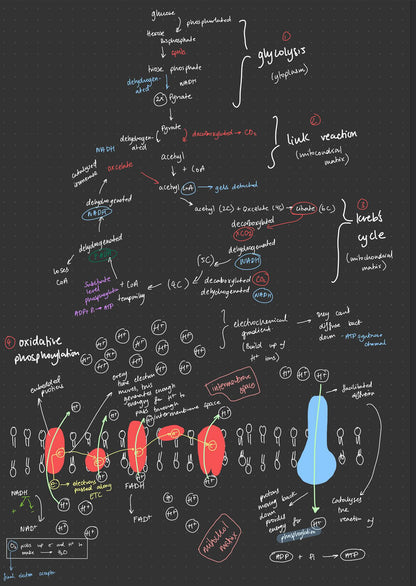 glucose
phosphorylated
Hexose
Bisphosphate
splits
triose phosphate
dehydrogen-
ated
NADH
2x Pyruvate
① glycolysis
(cytoplasm)
Pyruvate
dehydrogen-
ated
decarboxylated → CO₂
NADH
acetyl
+ CoA
acetyl CoA → gets detached
② link reaction
(mitochondrial
matrix)
oxaloacetate
acetyl (2C) + oxaloacetate (4C) → citrate (6C)
decarboxylated
CO₂
dehydrogenated
NADH
(5C)
decarboxylated CO₂
dehydrogenated NADH
(4C)
+ CoA
temporarily
substrate
level
phosphorylation
ADP + Pi → ATP
loses
CoA
dehydrogenated
dehydrogenated
NADH
③ Krebs
cycle
(mitochondrial
matrix)
④ oxidative
phosphorylation
H⁺ H⁺ H⁺ H⁺
H⁺ H⁺ H⁺ H⁺
H⁺ H⁺ H⁺ H⁺
electrochemical
gradient
(build up of
H⁺ ions)
they can't
diffuse back
down → ATP synthase
channel
embedded
proteins
every
time electron
moves, this
generates enough
energy for H⁺ to
pass through
intermembrane space
intermembrane
space
H⁺ H⁺ H⁺
facilitated
diffusion
e⁻ → electrons
passed along
ETC
NADH
NAD⁺
FADH
FAD⁺
H⁺ H⁺
H⁺ H⁺
O₂ picks up e⁻ and H⁺ to
make → H₂O
final electron acceptor
mitochondrial
matrix
protons
moving back
down
provides
energy for
phosphorylation
H⁺
catalyses
the
reaction of
ADP + Pi → ATP